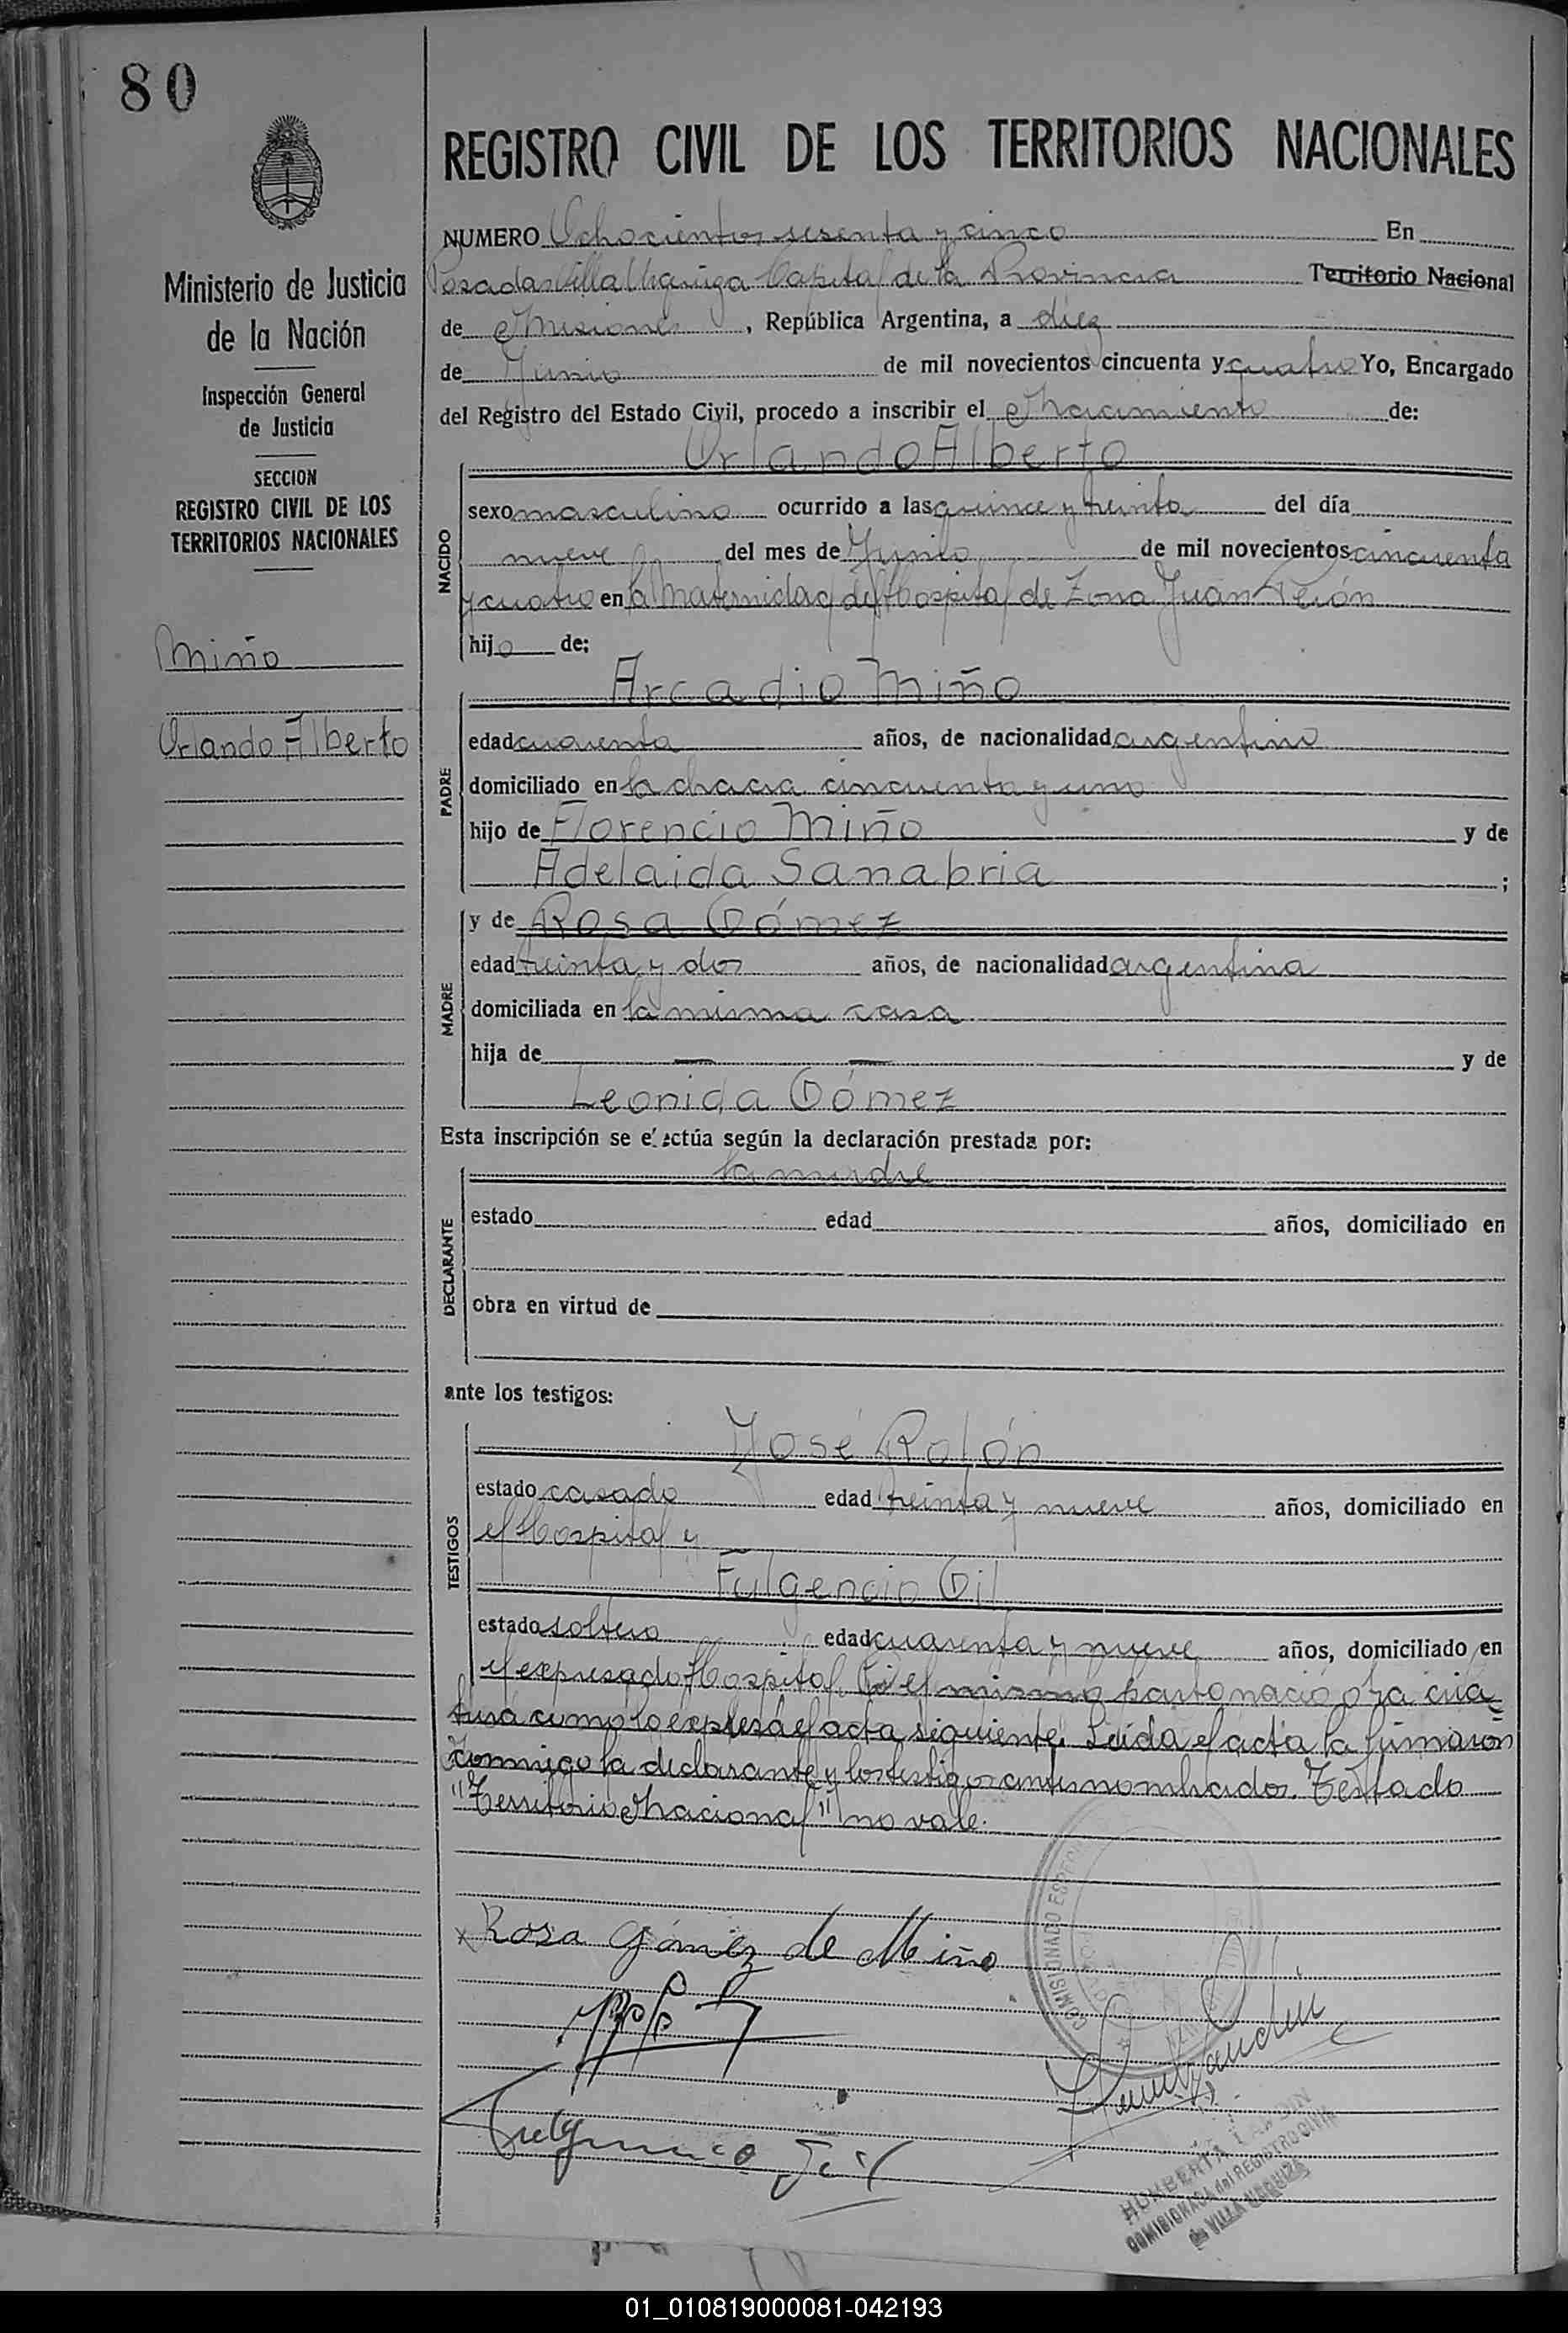 80
REGISTRO CIVIL DE LOS TERRITORIOS NACIONALES
Ministerio de Justicia
de la Nación
Inspección General
de Justicia
SECCION
REGISTRO CIVIL DE LOS
TERRITORIOS NACIONALES
Miño
Orlando Alberto
NUMERO Ochocientos sesenta y cinco En
Posadas Villa Urquiza Capital de la Provincia Territorio Nacional
de Misiones, República Argentina, a diez
de Junio de mil novecientos cincuenta y cuatro Yo, Encargado
del Registro del Estado Civil, procedo a inscribir el Nacimiento de:
Orlando Alberto
NACIDO
sexo masculino ocurrido a las quince y treinta del día
nueve del mes de Junio de mil novecientos cincuenta
y cuatro en la Maternidad del Hospital de Zona Juan Perón
hijo de:
Arcadio Miño
PADRE
edad cuarenta años, de nacionalidad argentino
domiciliado en la chacra cincuenta y uno
hijo de Florencio Miño y de
Adelaida Sanabria ;
MADRE
y de Rosa Gómez
edad treinta y dos años, de nacionalidad argentina
domiciliada en la misma casa
hija de — — y de
Leonida Gómez
Esta inscripción se efectúa según la declaración prestada por:
la madre
DECLARANTE
estado edad años, domiciliado en
obra en virtud de
ante los testigos:
José Rolón
TESTIGOS
estado casado edad treinta y nueve años, domiciliado en
el Hospital y
Fulgencio Gil
estado soltero edad cuarenta y nueve años, domiciliado en
el expresado Hospital. En el mismo parto nació otra cria
tura como lo expresa el acta siguiente. Leída el acta la firmaron
conmigo la declarante y los testigos antes nombrados. Testado
"Territorio Nacional" no vale.
Rosa Gómez de Miño
Fulgencio Gil
COMISIONADO
COMISIONADA del REGISTRO CIVIL
de VILLA URQUIZA
01_010819000081-042193